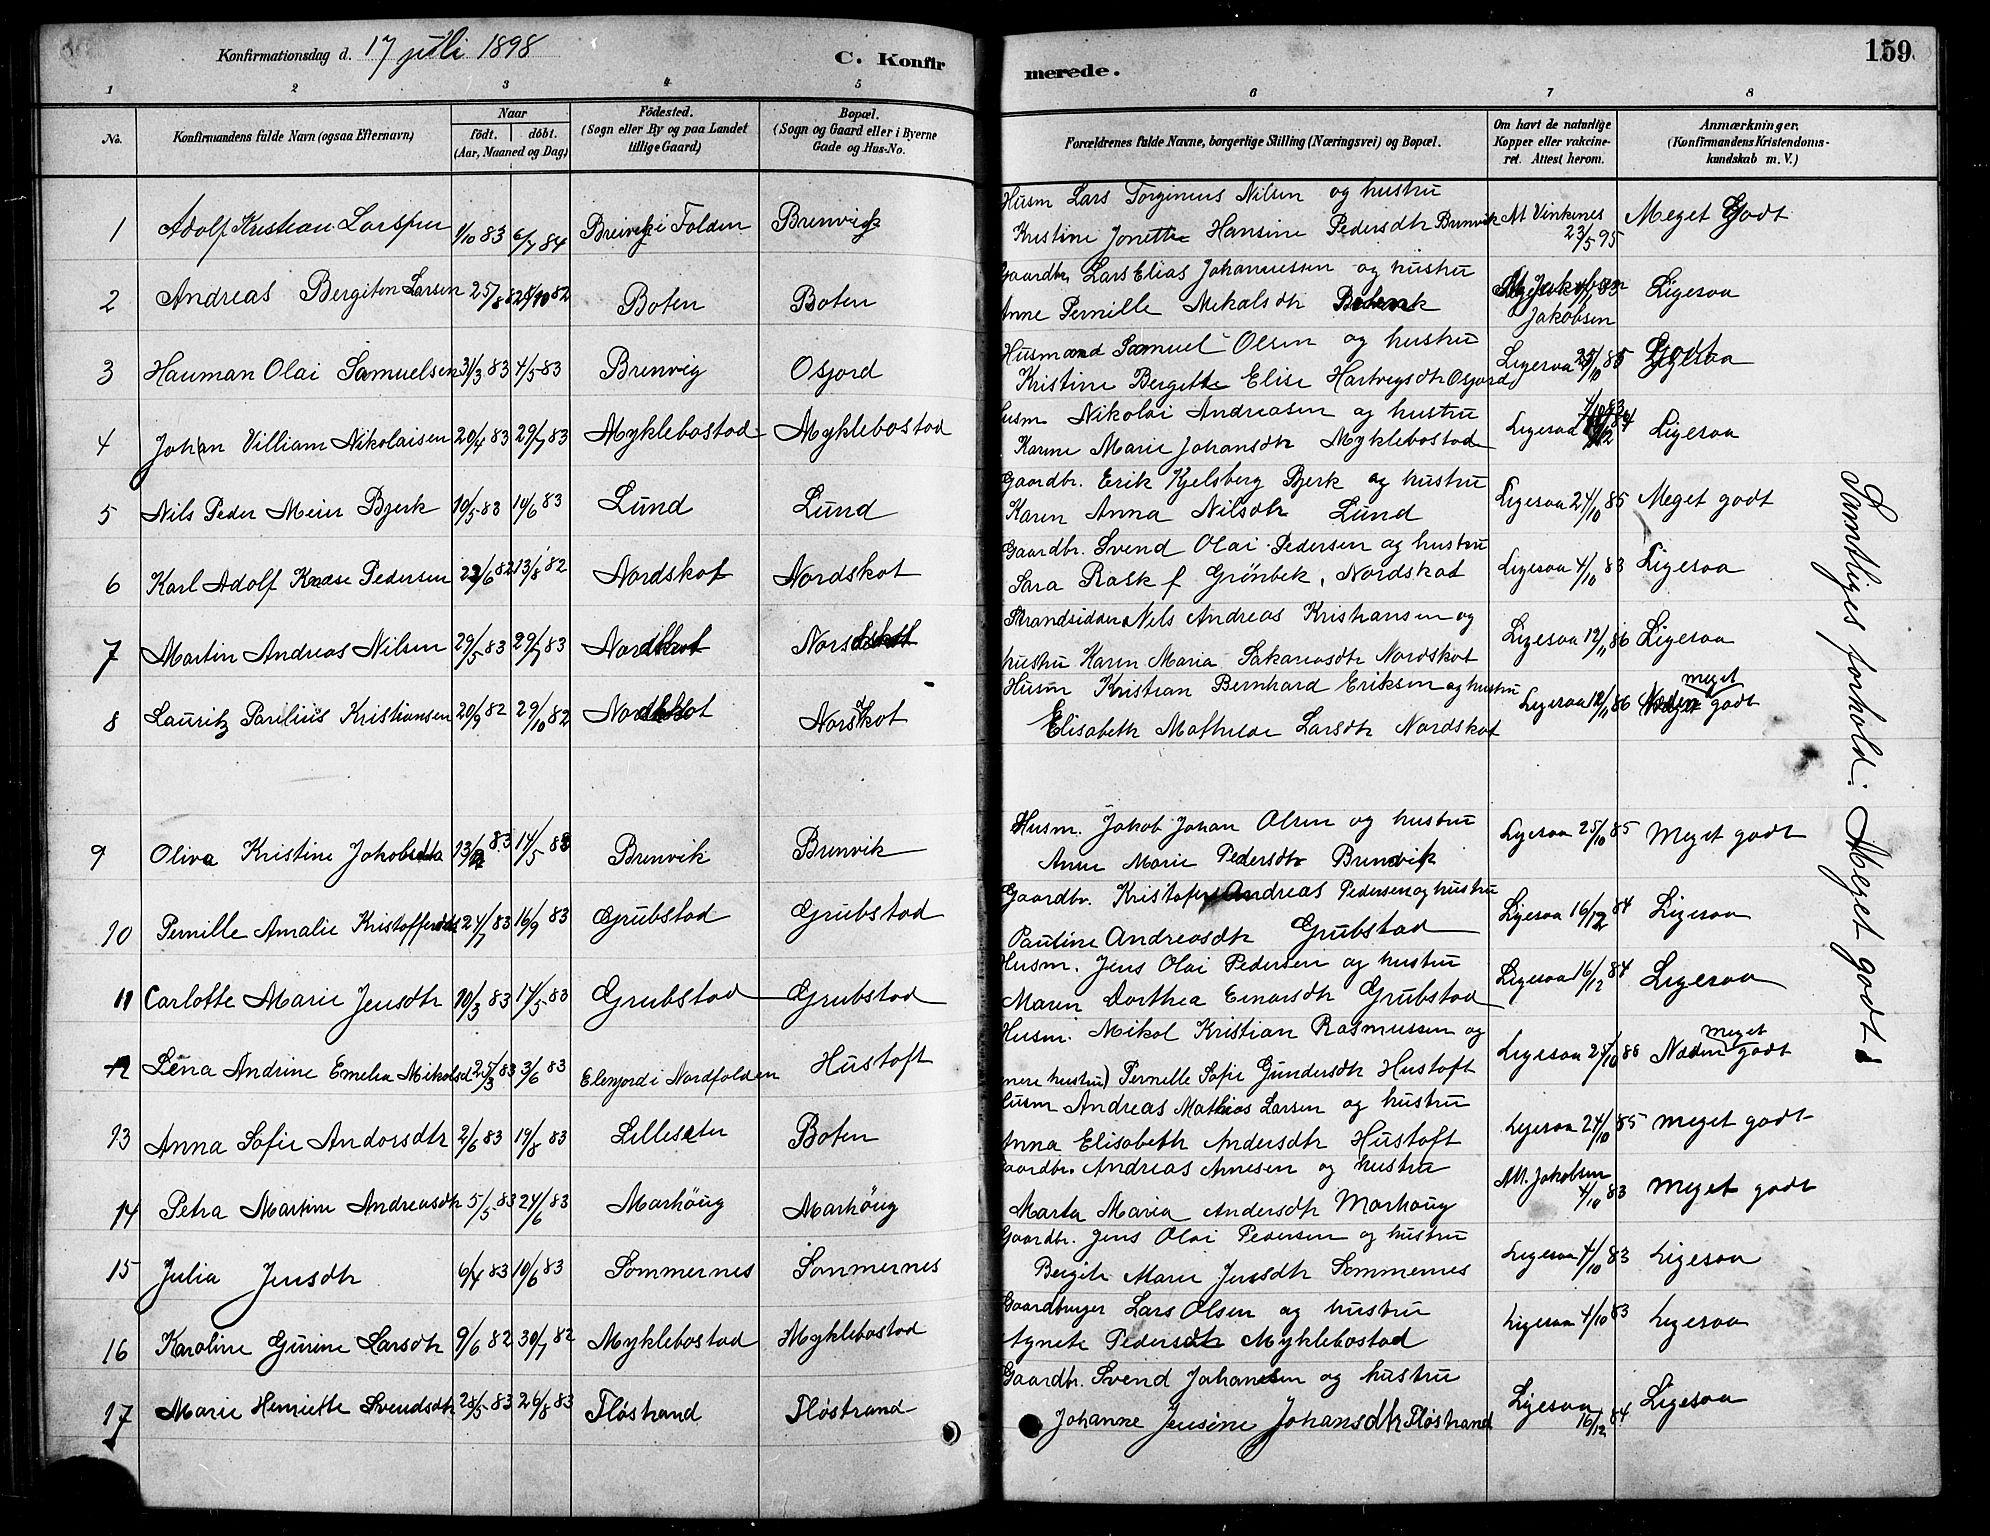 Konfirmationsdag d. 17 juli 1898
C. Konfirmerede.
159
1 2 3 4 5 6 7 8
No. Konfirmandens fulde Navn (ogsaa Efternavn) Naar födt. döbt. (Aar, Maaned og Dag) Födested. (Sogn eller By og paa Landet tillige Gaard) Bopæl. (Sogn og Gaard eller i Byerne Gade og Hus-No. Forældrenes fulde Navne, borgerlige Stilling (Næringsvei) og Bopæl. Om havt de naturlige Kopper eller vakcineret. Attest herom. Anmærkninger. (Konfirmandens Kristendomskundskab m. V.)
Husm Lars Torgineus Nilsen og hustru
1 Adolf Kristian Larssen 1/10 83 6/7 84 Breivik i Folden Brenvig Kristine Jonette Hansine Pedersdtr Brenvik At Vinkenes 23/5 95 Meget Godt
Gaardbr. Lars Elias Johannessen og hustru
2 Andreas Bergiton Larsen 25/8 82 Boten Boten Anne Pernille Mekalsdtr Jakobsen Ligesaa
Husmand Samuel Olsen og hustru
3 Hauman Olai Samuelsen 31/3 83 4/5 83 Brenvig Osjord Kristine Bergette Elise Hartvigsdtr Osjord Ligesaa 25/10 85 Godt
Husm. Nikolai Andreasen og hustru
4 Johan Villiam Nikolaisen 20/4 83 29/7 83 Myklebostad Myklebostad Karine Marie Johansdtr Myklebostad Ligesaa Ligesaa
Gaardbr. Erik Kjelsberg Bjerk og hustru
5 Nils Peder Meier Bjerk 10/5 83 10/6 83 Lund Lund Karen Anna Nilsdtr Lund Ligesaa 24/10 85 Meget godt
Gaardbr. Svend Olai Pedersen og hustru
6 Karl Adolf Knase Pedersen 23/6 82 13/8 82 Nordskot Nordskot Sara Rask f Grönbek, Nordskot Ligesaa 4/10 83 Ligesaa
Strandsidder Nels Andreas Kristiansen og
7 Martin Andreas Nilsen 29/5 83 29/7 83 Nordskot Nordskot hustru Karen Maria Sakariasdtr Nordskot Ligesaa 12/11 86 Ligesaa
Husm Kristian Bernhard Eriksen og hustru
8 Lauritz Parilius Kristiansen 20/9 82 29/10 82 Nordskot Nordskot Elisabeth Mathilde Larsdtr Nordskot Ligesaa 12/11 86 meget godt
Husm. Jakob Johan Olsen og hustru
9 Oliva Kristine Jakobsdtr 14/5 83 Brenvik Brenvik Anne Marie Pedersdtr Brenvik Ligesaa 25/10 85 Meget godt
Gaardbr. Kristofer Andreas Pedersen og hustru
10 Pernille Amalie Kristoffersdtr 24/7 83 16/9 83 Grubstad Grubstad Pauline Andreasdtr Grubstad Ligesaa 16/12 84 Ligesaa
Husm. Jens Olai Pedersen og hustru
11 Carlotte Marie Jensdtr 10/3 83 14/5 83 Grubstad Grubstad Maren Dorthea Einarsdtr Grubstad Ligesaa 16/12 84 Ligesaa
Husm. Mikol Kristian Rasmussen og
12 Lena Andrine Emelia Mikolsd 25/3 83 3/6 83 Elenjord i Nordfolden Hustoft hustru) Pernelle Sofie Gundersdtr Hustoft Ligesaa Næsten meget godt
Husm Andreas Mathias Larsen og hustru
13 Anna Sofie Andorsdtr 2/6 83 19/8 83 Lilleseter Boten Anna Elisabeth Andersdtr Hustoft Ligesaa 24/10 85 meget godt
Gaardbr. Andreas Arnesen og hustru
14 Petra Martine Andreasdtr 5/5 83 24/6 83 Marhöug Marhöug Marta Maria Andersdtr Marhoug M. Jakobsen 4/10 83 meget godt
Gaardbr. Jens Olai Pedersen og hustru
15 Julia Jensdtr 6/4 83 10/6 83 Sommernes Sommernes Bergite Marie Jensdtr Sommernes Ligesaa 4/10 83 Ligesaa
Gaardbruger Lars Olsen og hustru
16 Karoline Gurine Larsdtr 9/6 82 30/7 82 Myklebostad Myklebostad Agnete Pedersdtr Myklebostad Ligesaa 4/10 83 Ligesaa
Gaardbr. Svend Johansen og hustru
17 Marie Henriette Svendsdtr 28/5 83 26/8 83 Flöstrand Flöstrand Johanne Jensine Johansdtr Flöstrand Ligesaa 16/12 84 Ligesaa
Samtliges forhold: Meget godt!